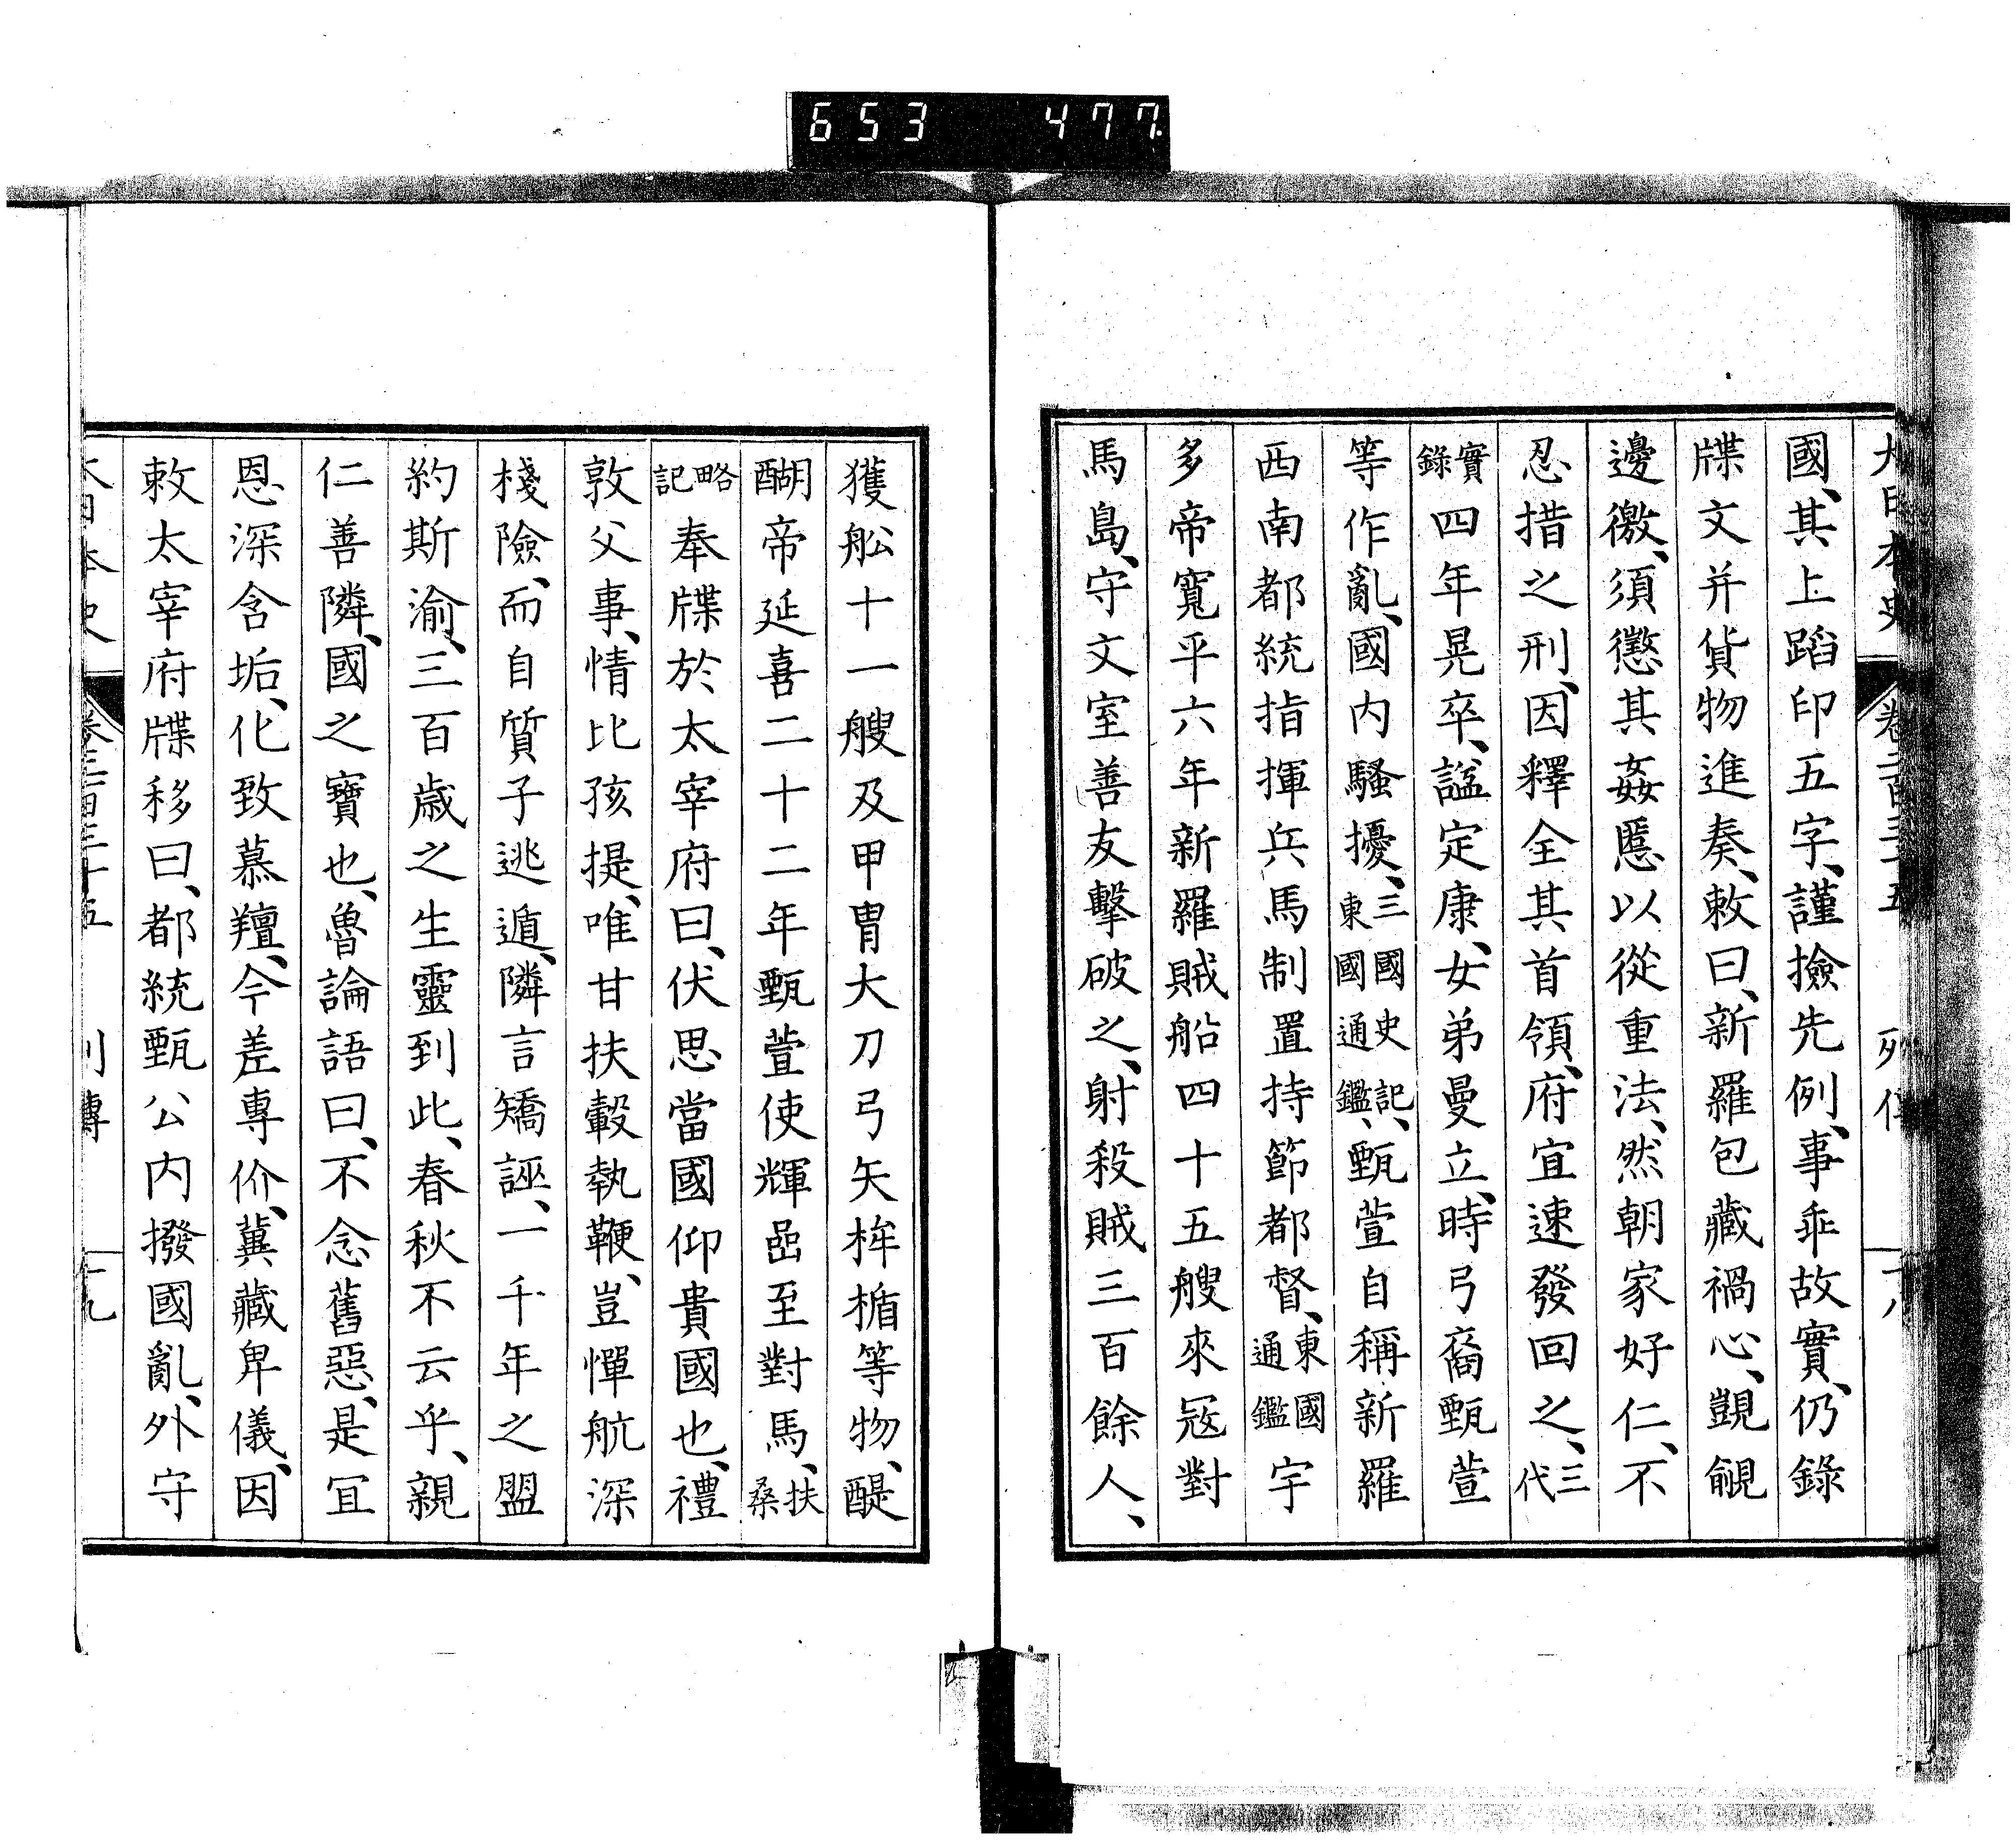 653 477
大日本史 卷二百三十五 列傳 十八
國、其上蹈印五字、謹撿先例、事乖故實、仍錄
牒文并貨物進奏、敕曰、新羅包藏禍心、覬覦
邊徼、須懲其姦慝以從重法、然朝家好仁、不
忍措之刑、因釋全其首領、府宜速發回之、三代
實錄四年晃卒、諡定康、女弟曼立、時弓裔甄萱
等作亂、國內騷擾、三國史記、東國通鑑、甄萱自稱新羅
西南都統指揮兵馬制置持節都督、東國通鑑宇
多帝寬平六年新羅賊船四十五艘來寇對
馬島、守文室善友擊破之、射殺賊三百餘人、
獲舩十一艘及甲冑大刀弓矢桙楯等物、醍
醐帝延喜二十二年甄萱使輝嵒至對馬、扶桑
略記奉牒於太宰府曰、伏思當國仰貴國也、禮
敦父事、情比孩提、唯甘扶轂執鞭、豈憚航深
棧險、而自質子逃遁、隣言矯誣、一千年之盟
約斯渝、三百歲之生靈到此、春秋不云乎、親
仁善隣、國之寶也、魯論語曰、不念舊惡、是宜
恩深含垢、化致慕羶、今差專价、冀藏卑儀、因
敕太宰府牒移曰、都統甄公內撥國亂、外守
大日本史 卷二百三十五 列傳 十九